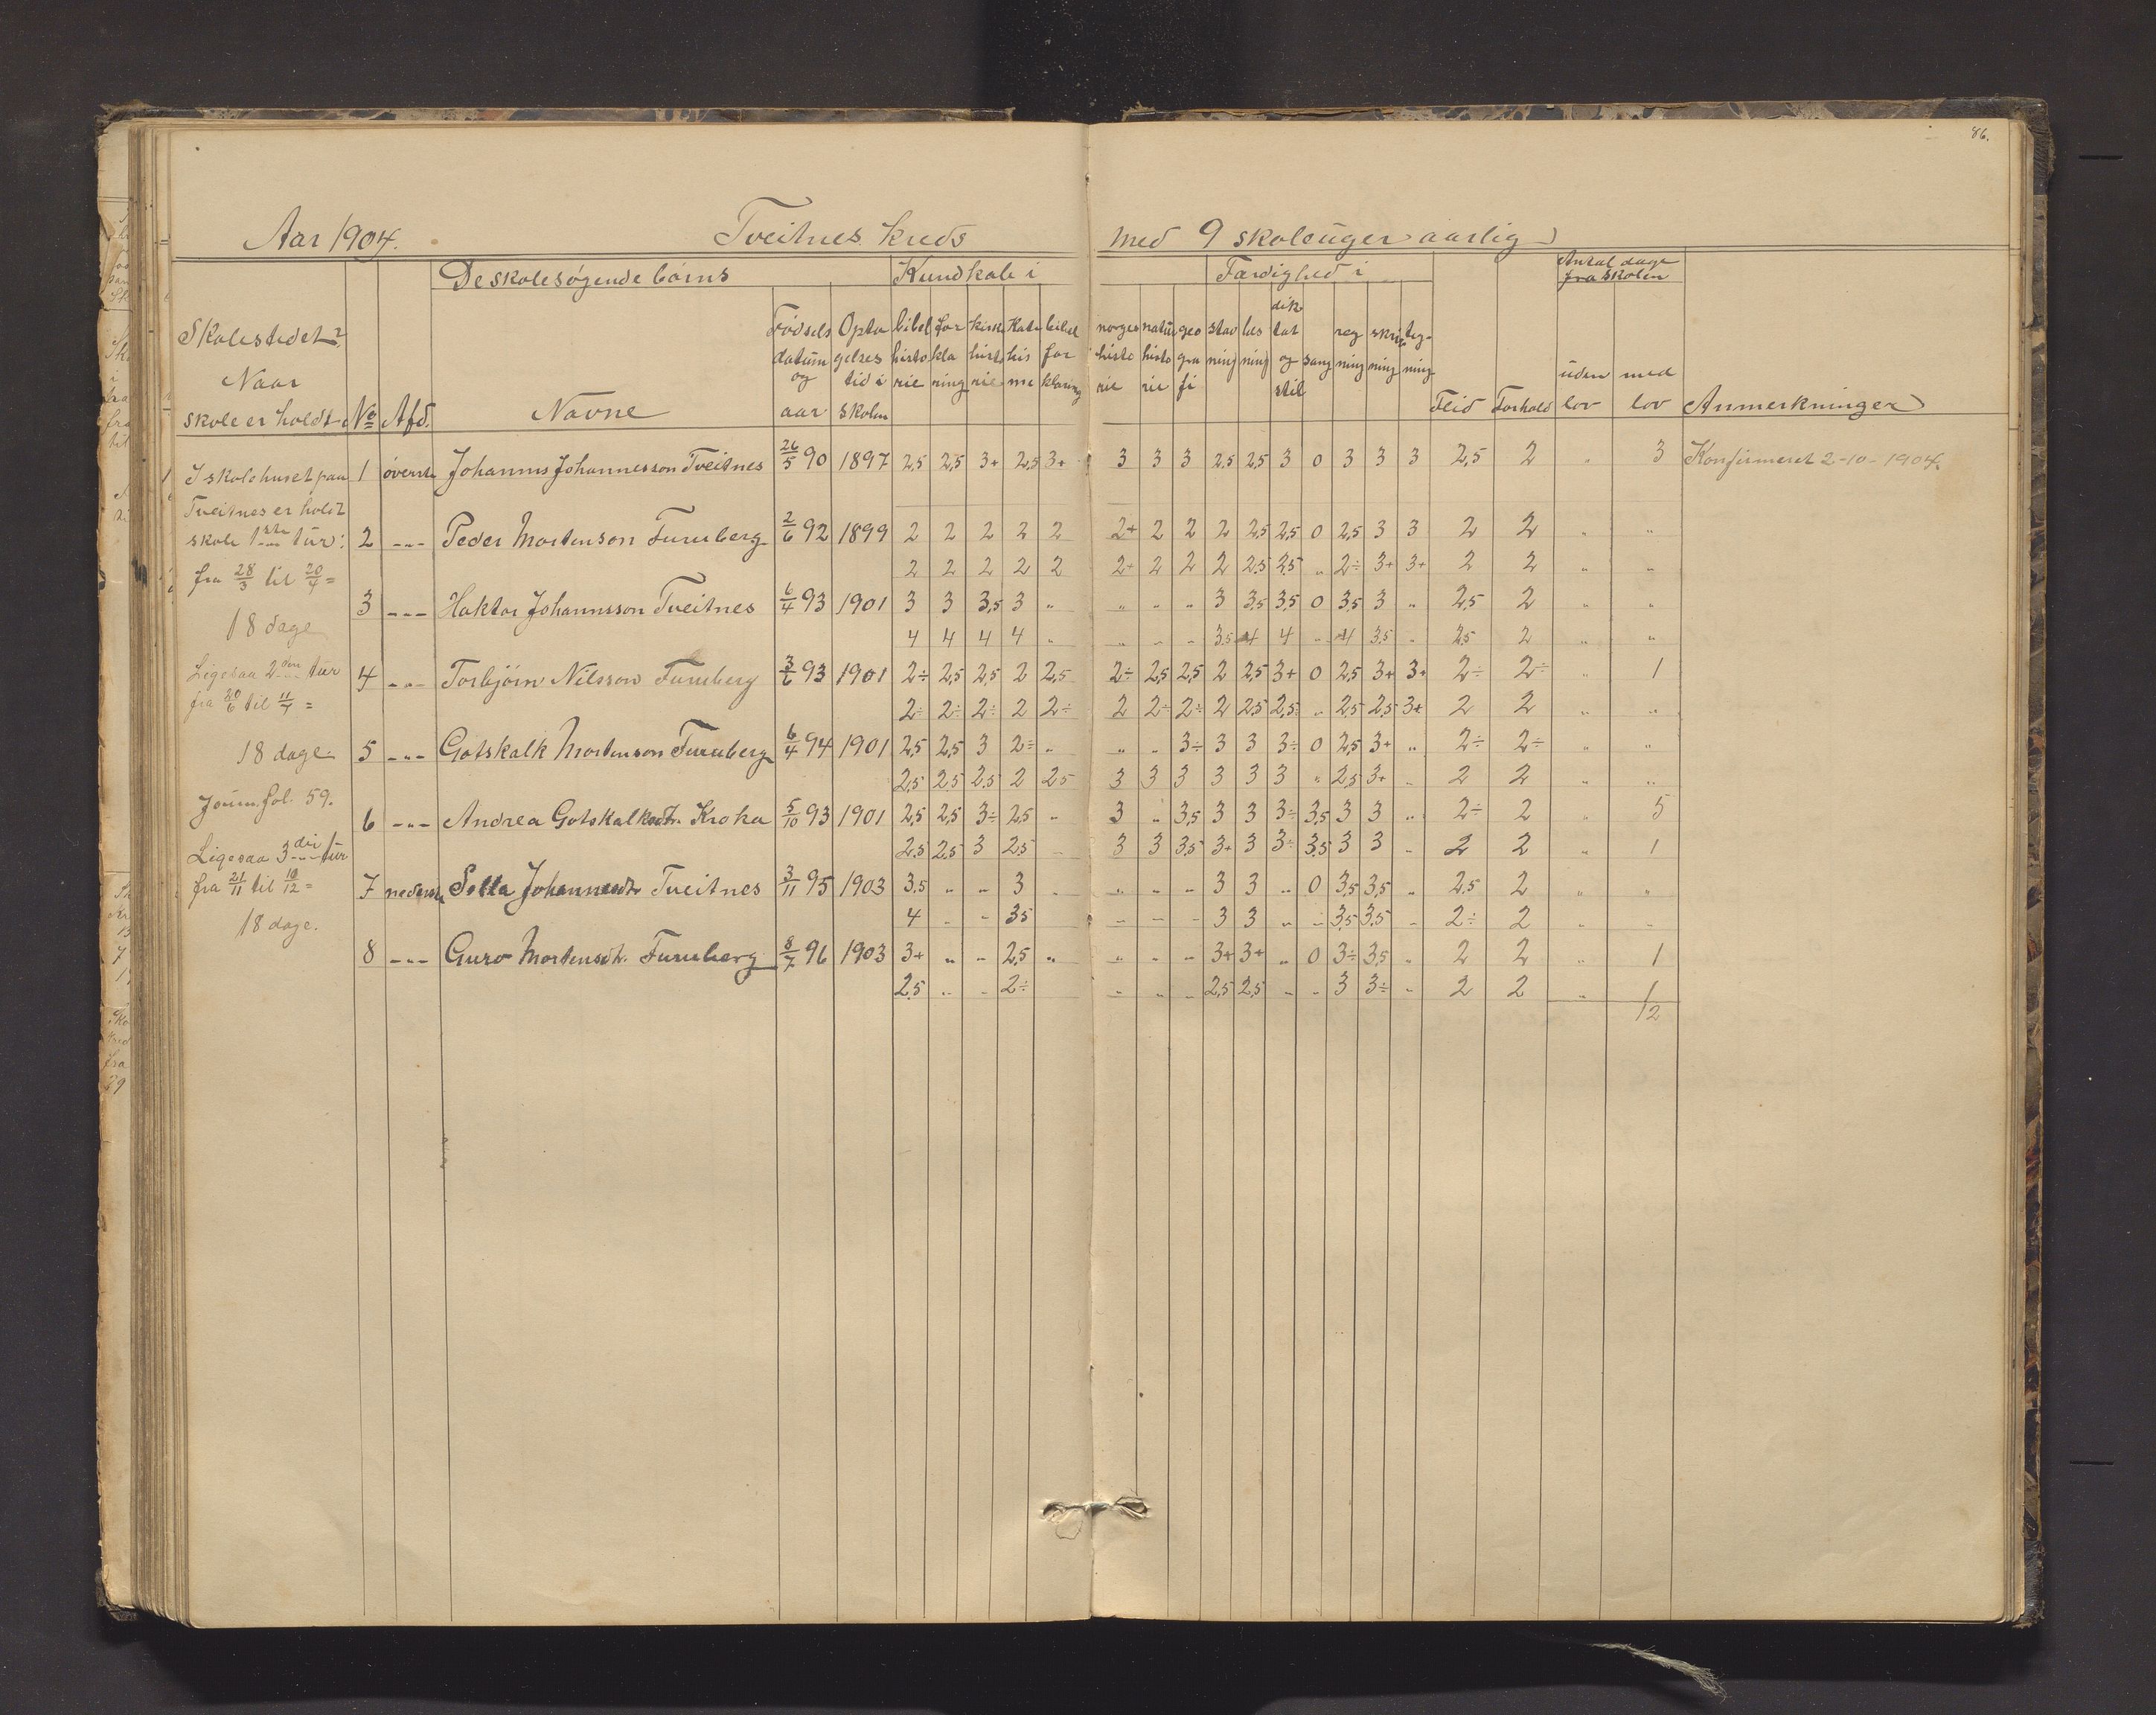 86.
Aar 1904. Tveitnes kreds med 9 skoleuger aarlig
De skolesøgende børns Kundskab i Færdighed i Antal dage fra skolen
Skolestedet? Naar skole er holdt No Afd. Navne Fødsels datum og aar Opta gelses tid i skolen bibel histo rie for kla ring kirke histo rie Kate kis me bibel for klaring norges histo rie natur histo rie geo gra fi stav ning læs ning dik tat og stil sang reg ning skriv ning teg- ning Flid Forhold uden lov med lov Anmerkninger
I skolehuset paa 1 øverste Johannes Johannesson Tveitnes 26/5 90 1897 2,5 2,5 3+ 2,5 3+ 3 3 3 2,5 2,5 3 0 3 3 3 2,5 2 " 3 Konfirmeret 2-10-1904.
Tveitnes er holdt
skole 1ste tur: 2 -"- Peder Mortenson Furuberg 2/6 92 1899 2 2 2 2 2 2+ 2 2 2 2,5 2,5 0 2,5 3 3 2 2 " "
fra 28/3 til 20/4 = 2 2 2 2 2 2+ 2 2 2 2,5 2,5 " 2÷ 3+ 3+ 2 2 " "
3 -"- Haktor Johannsson Tveitnes 6/4 93 1901 3 3 3,5 3 " " " " 3 3,5 3,5 0 3,5 3 " 2,5 2 " "
18 dage 4 4 4 4 " " " " 3,5 4 4 " 4 3,5 " 2,5 2 " "
Ligesaa 2den tur 4 -"- Torbjørn Nilsson Furuberg 3/6 93 1901 2÷ 2,5 2,5 2 2,5 2÷ 2,5 2,5 2 2,5 3+ 0 2,5 3+ 3+ 2÷ 2÷ " 1
fra 20/6 til 11/7 = 2÷ 2÷ 2÷ 2 2÷ 2 2÷ 2÷ 2 2,5 2,5 " 2,5 2,5 3+ 2 2 " "
18 dage. 5 -"- Gotskalk Mortenson Furuberg 6/4 94 1901 2,5 2,5 3 2÷ " " " 3÷ 3 3 3÷ 0 2,5 3+ " 2÷ 2÷ " "
2,5 2,5 2,5 2 2,5 3 3 3 3 3 3 " 2,5 3+ " 2 2 " "
Journ. fol. 59.
6 -"- Andrea Gotskalksdtr. Kroka 5/10 93 1901 2,5 2,5 3÷ 2,5 " 3 " 3,5 3 3 3÷ 3,5 3 3 " 2÷ 2 " 5
Ligesaa 3die tur 2,5 2,5 3 2,5 " 3 3 3,5 3+ 3 3÷ 3,5 3 3 " 2 2 " 1
fra 21/11 til 10/12 = 7 nederste Johannesdtr Tveitnes 3/11 95 1903 3,5 " " 3 " " " " 3 3 " 0 3,5 3,5 " 2,5 2 " "
18 dage. 4 " " 3,5 " " " 3 3 " " 3,5 3,5 " 2÷ 2 " "
8 -"- Guro Mortensdtr. Furuberg 8/7 96 1903 3+ " " 2,5 " " " " 3+ 3+ " 0 3÷ 3,5 " 2 2 " 1
2,5 " " 2÷ " " " 2,5 2,5 " " 3 3÷ " 2 2 " 1
12